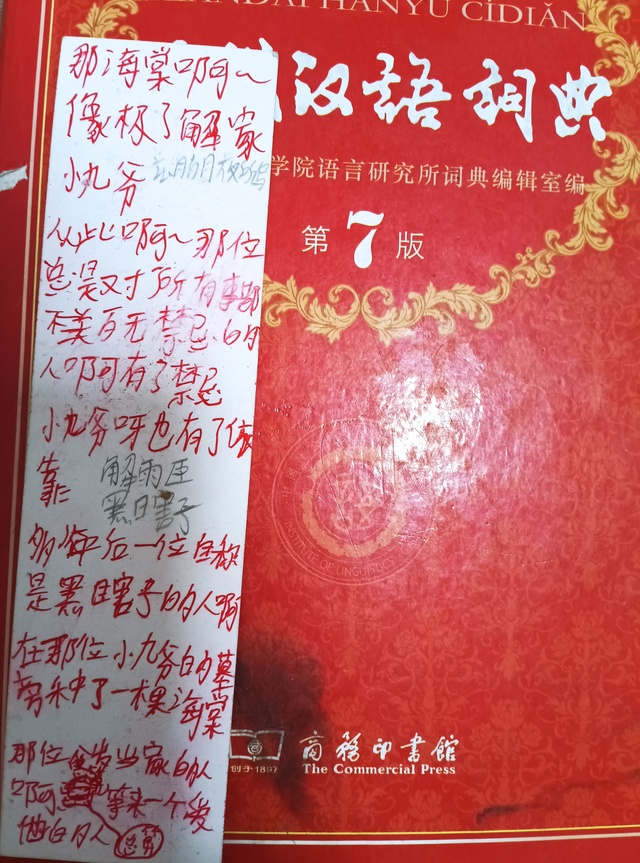 XIANDAI HANYU CÍDIǍN
汉语词典
学院语言研究所词典编辑室编
第7版
INSTITUTE OF LINGUISTICS
商務印書館
创于1897 The Commercial Press
那海棠啊～
像极了解家
小九爷
从此啊～那位
总是对所有事都
不美百无禁忌的
人啊有了禁忌
小九爷呀也有了依
靠 解雨臣
黑瞎子
多年后一位自称
是黑瞎子的人啊
在那位小九爷的墓
旁种了一棵海棠
那位 岁当家的人
啊 等来一个爱
他的人 总算